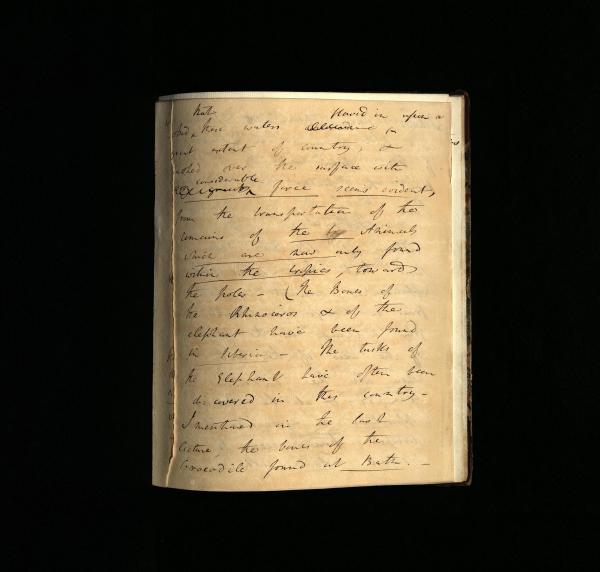 that moved in upon a
these waters
great extent of country, &
over the surface with
considerable
force seems evident,
from the transportation of the
remains of the Animals
which are now only found
within the tropics, towards
the poles - (the Bones of
the Rhinoceros & of the
elephant have been found
in Siberia - The tusks of
the Elephant have often been
discovered in this country -
I mentioned in the last
Lecture, the bones of the
Crocodile found at Bath. -